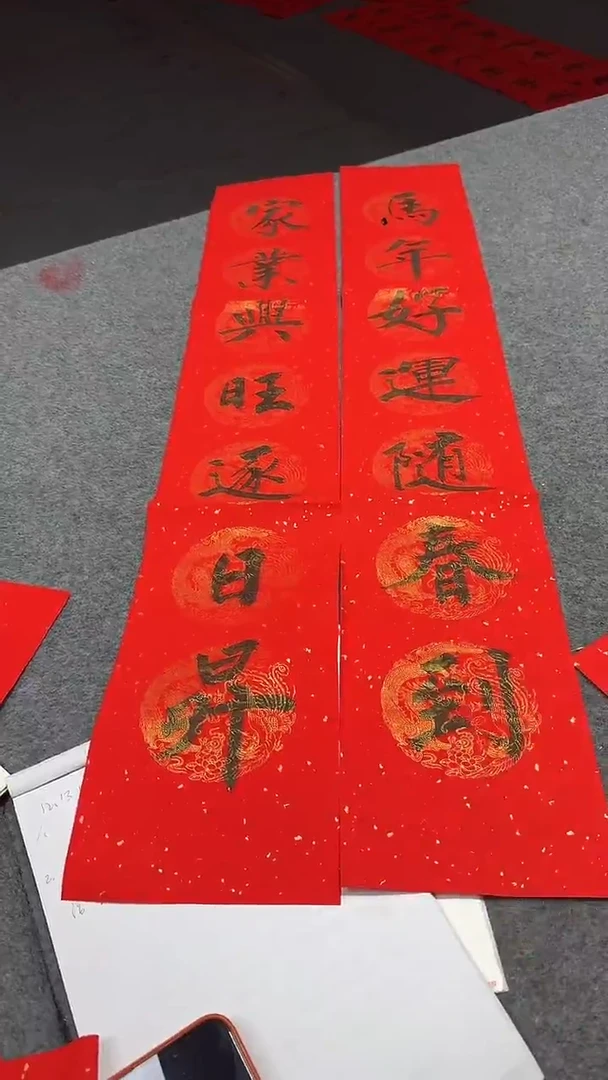 馬年好運隨春到
家業興旺逐日昇